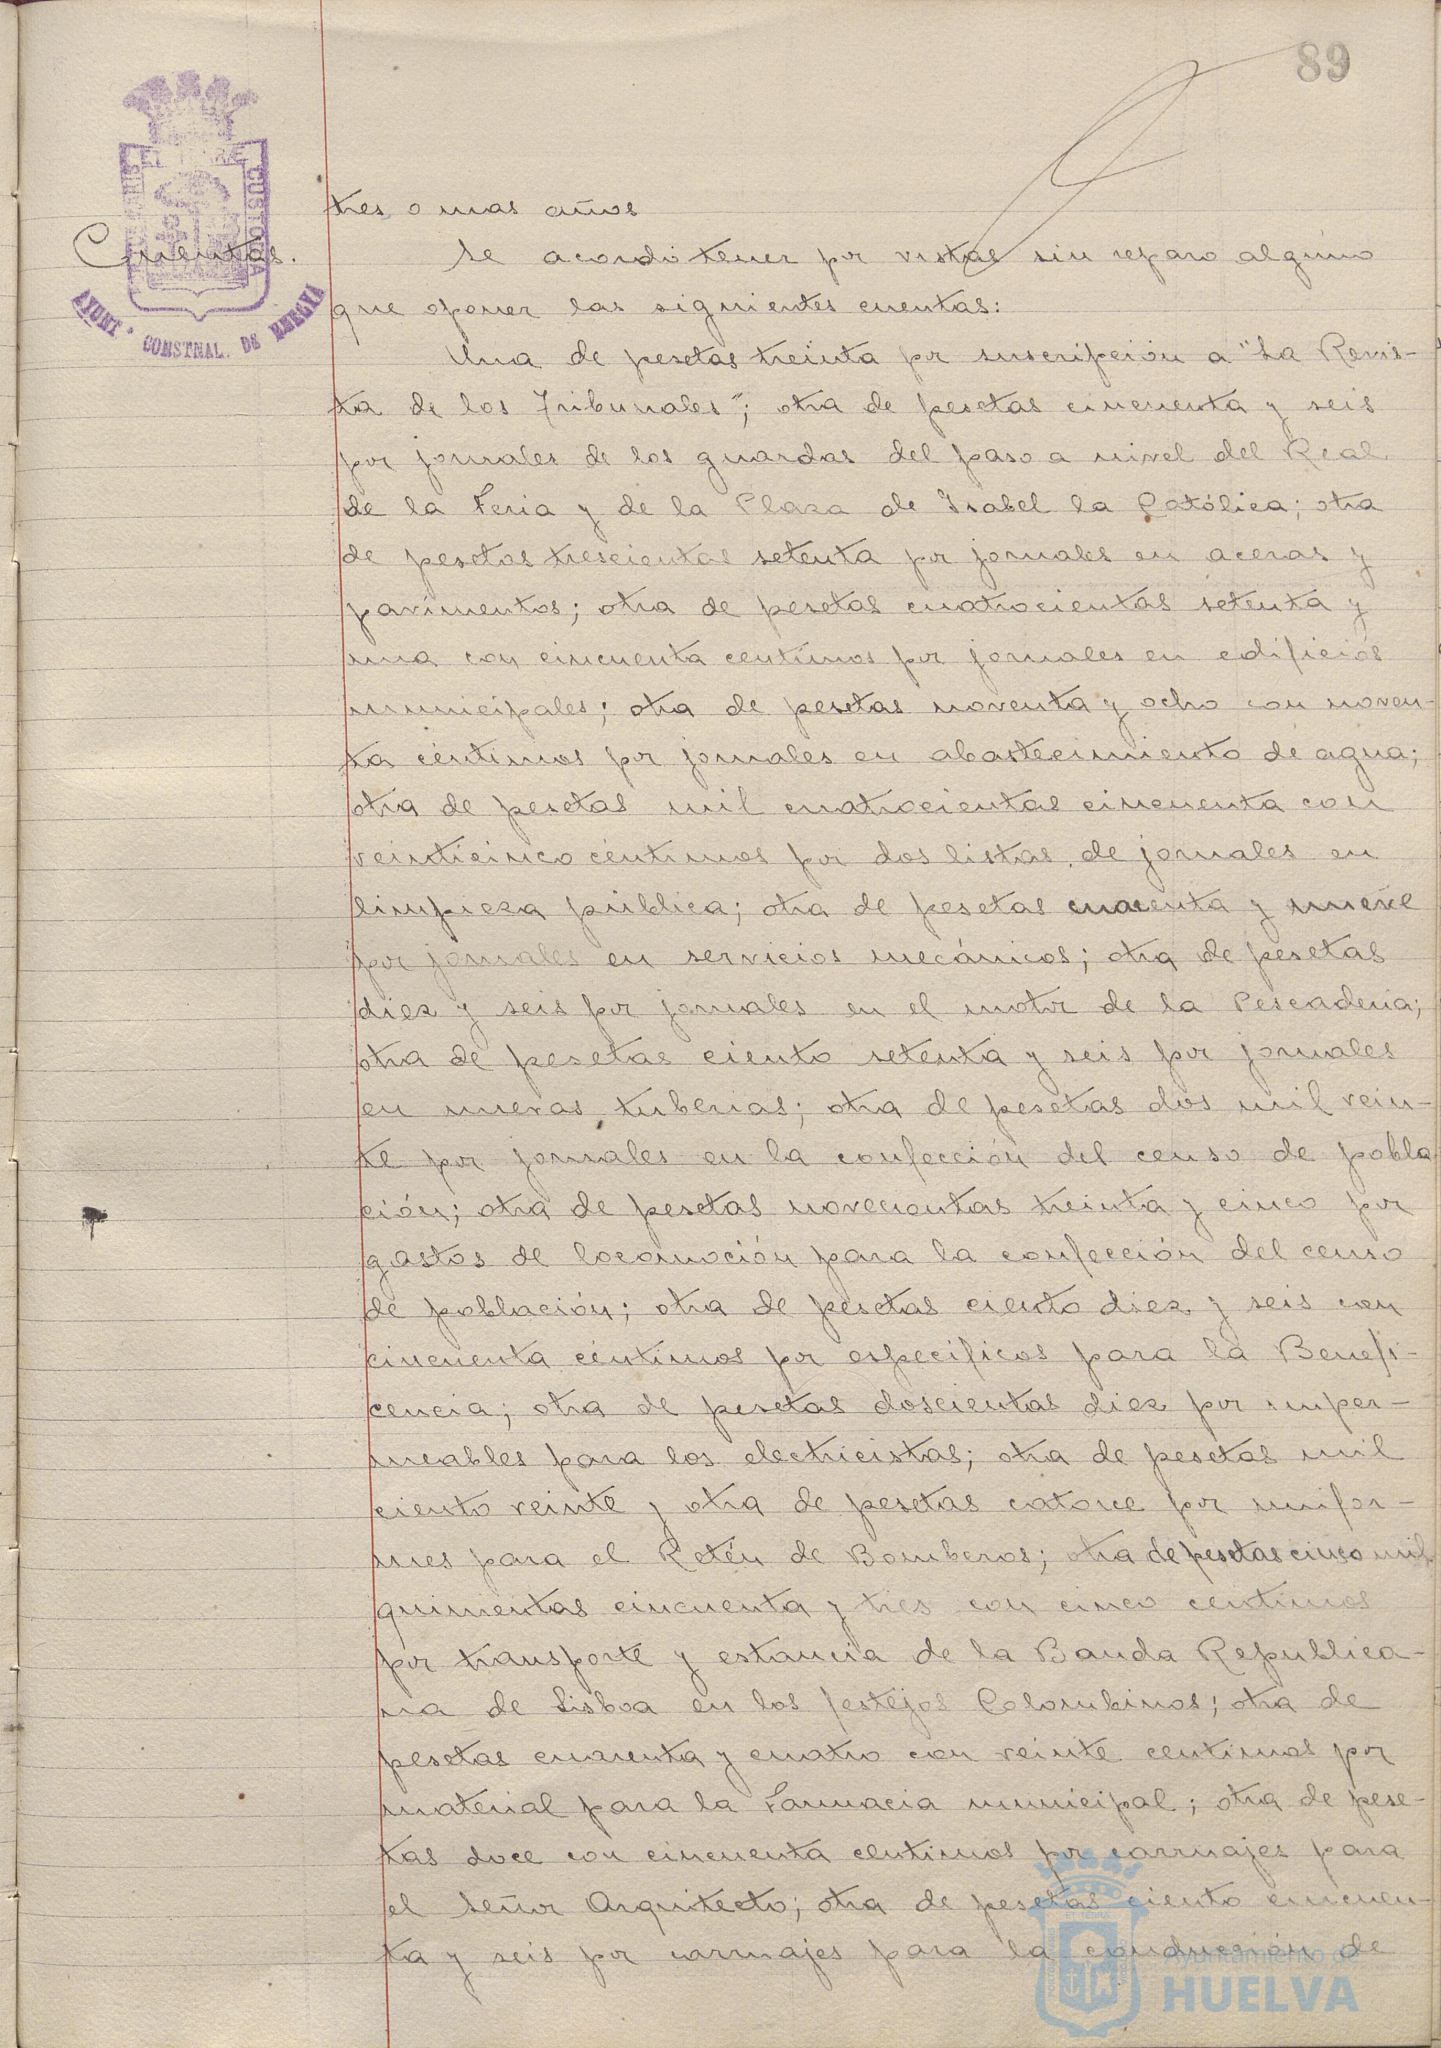 89
tres o mas años
Cuentas.
Se acordó tener por vistas sin reparo alguno
que oponer las siguientes cuentas:
Una de pesetas treinta por suscripción a "La Revis-
ta de los Tribunales"; otra de pesetas cincuenta y seis
por jornales de los guardas del paso a nivel del Real
de la Feria y de la Plaza de Isabel la Católica; otra
de pesetas trescientas setenta por jornales en aceras y
pavimentos; otra de pesetas cuatrocientas setenta y
una con cincuenta centimos por jornales en edificios
municipales; otra de pesetas noventa y ocho con noven-
ta céntimos por jornales en abastecimiento de agua;
otra de pesetas mil cuatrocientas cincuenta con
veinticinco céntimos por dos listas de jornales en
limpieza pública; otra de pesetas cuarenta y nueve
por jornales en servicios mecánicos; otra de pesetas
diez y seis por jornales en el motor de la Pescaderia;
otra de pesetas ciento setenta y seis por jornales
en nuevas tuberias; otra de pesetas dos mil vein-
te por jornales en la confección del censo de pobla
ción; otra de pesetas novecientas treinta y cinco por
gastos de locomoción para la confección del censo
de población; otra de pesetas ciento diez y seis con
cincuenta céntimos por especificos para la Benefi-
cencia; otra de pesetas doscientas diez por imper-
meables para los electricistas; otra de pesetas mil
ciento veinte y otra de pesetas catorce por unifor-
mes para el Retén de Bomberos; otra de pesetas cinco mil
quinientas cincuenta y tres con cinco centimos
por transporte y estancia de la Banda Republica-
na de Lisboa en los festejos Colombinos; otra de
pesetas cuarenta y cuatro con veinte centimos por
material para la Farmacia municipal; otra de pese-
tas doce con cincuenta centimos por carruajes para
el Señor Arquitecto; otra de pesetas ciento cincuen-
ta y seis por carruajes para la conducción de
AYUNT. CONSTNAL. DE HUELVA
Ayuntamiento de
HUELVA